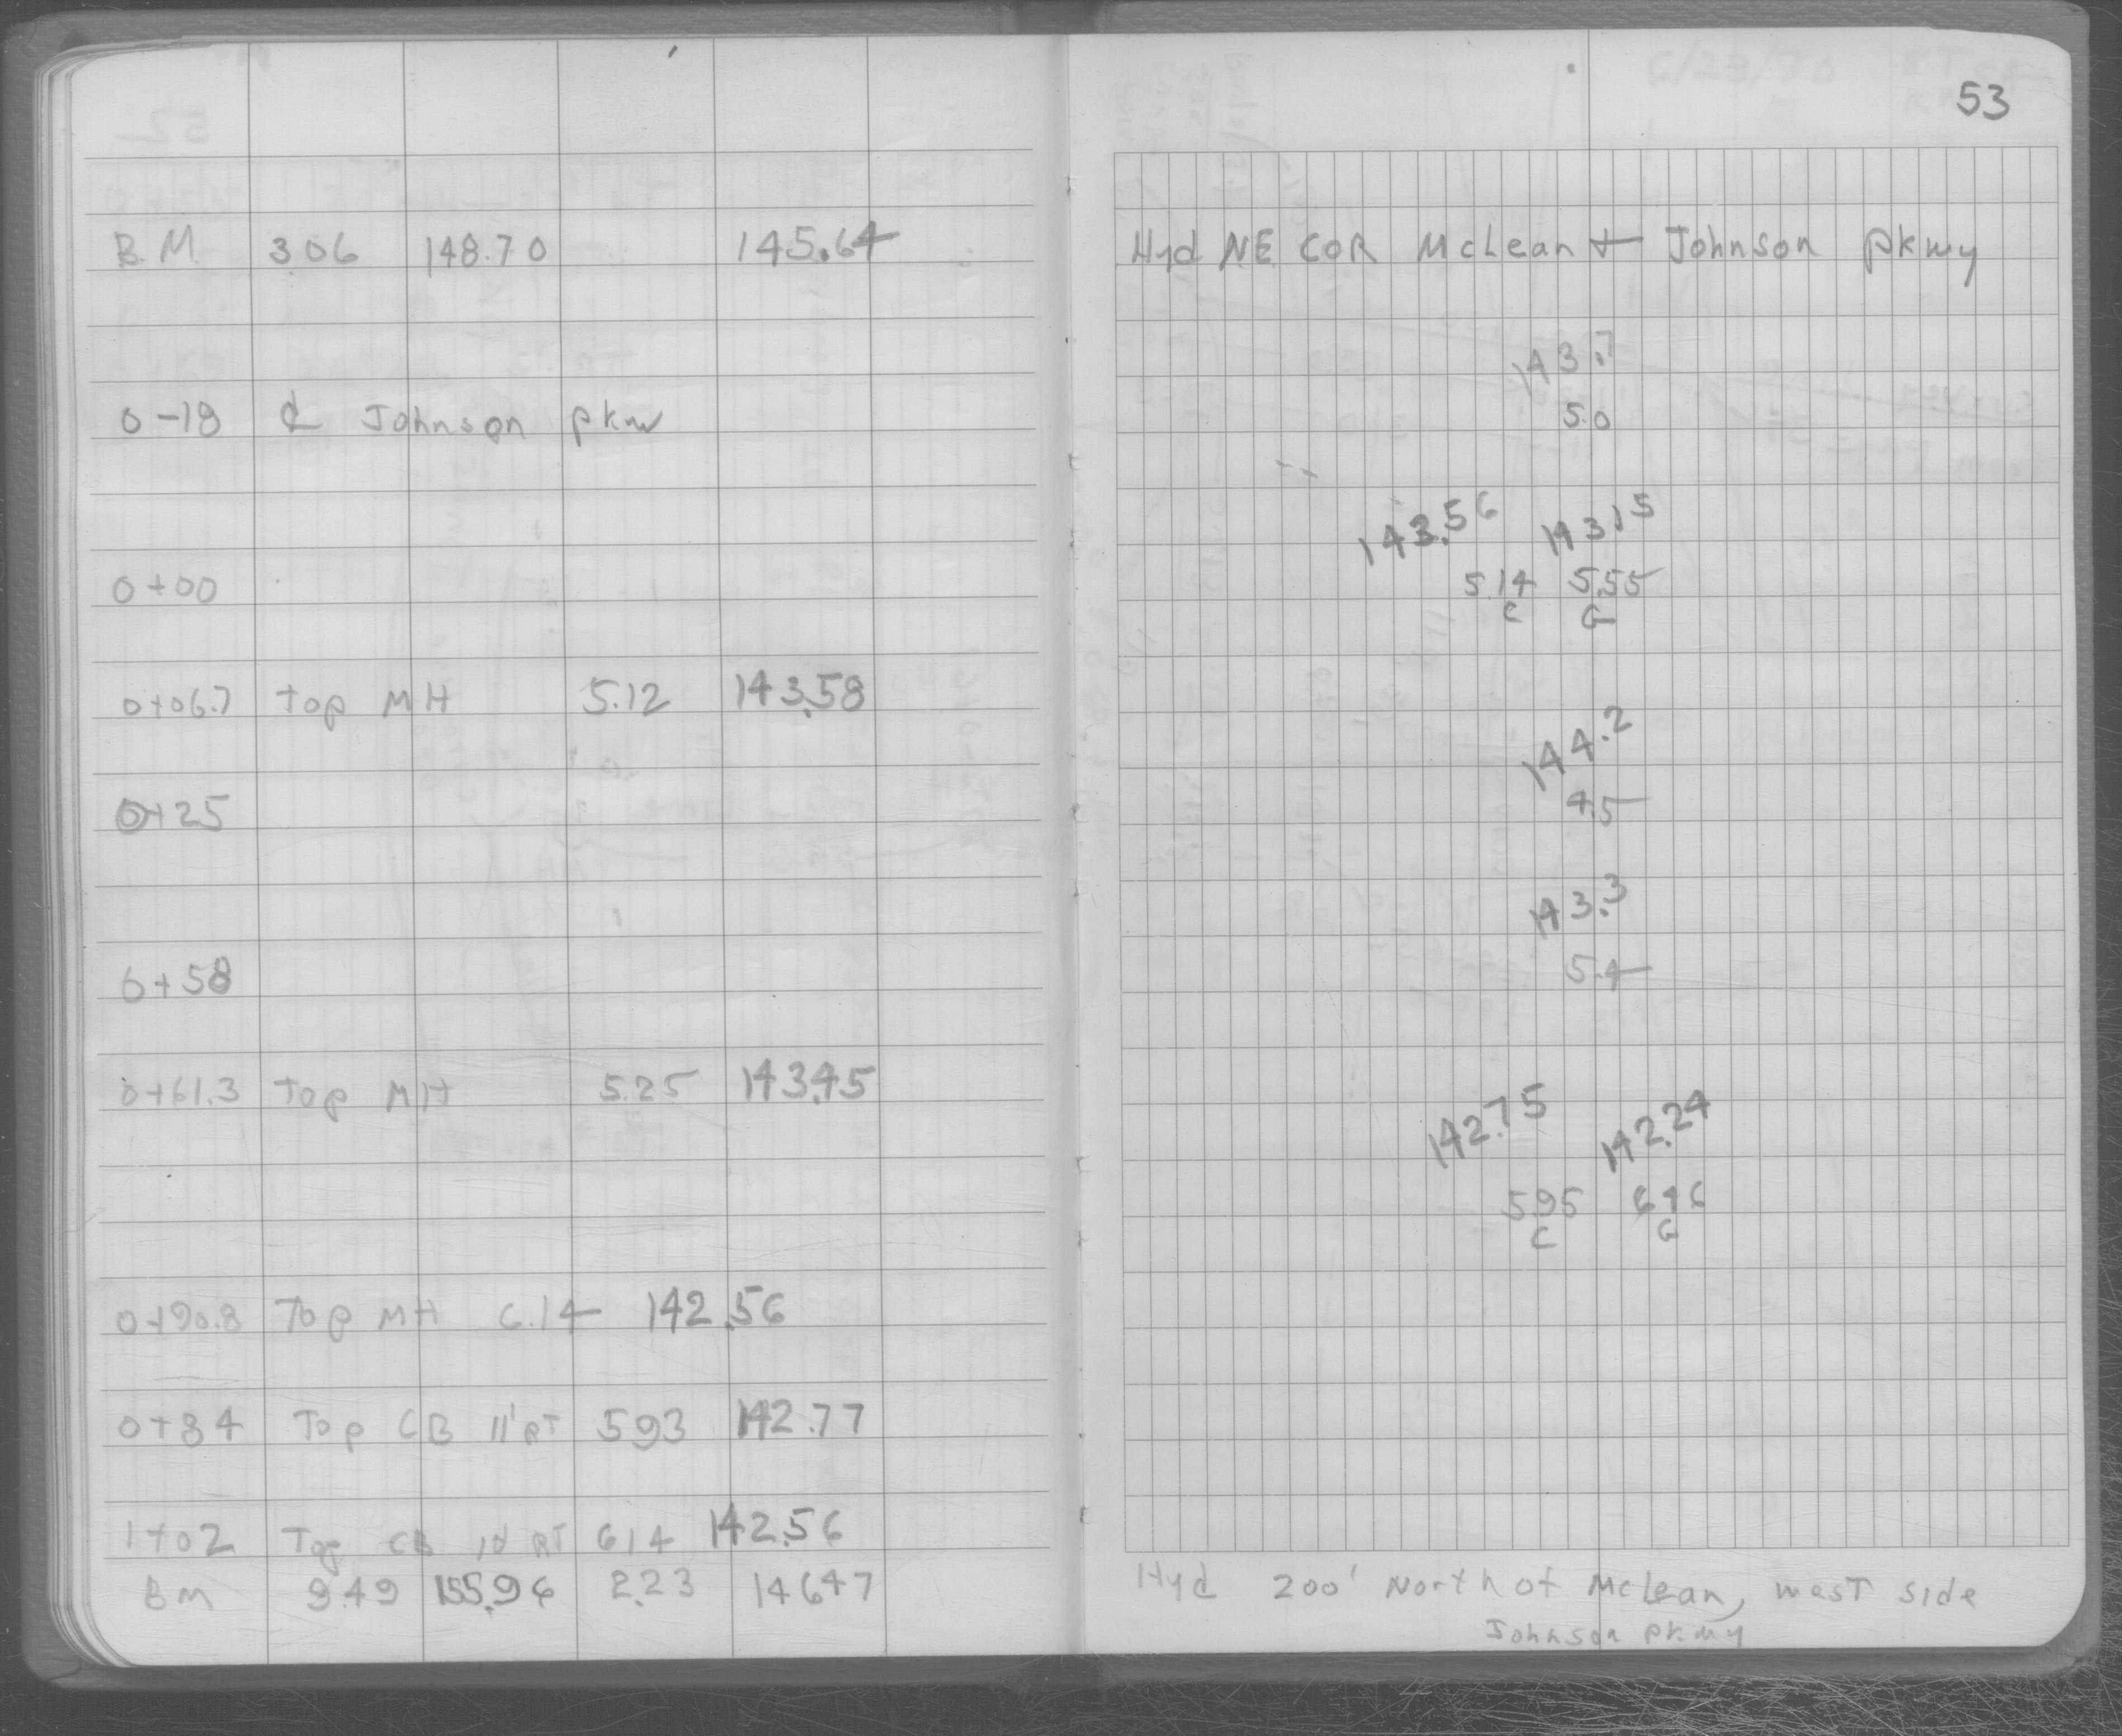 53
B.M. 3.06 148.70 145.64 Hyd NE COR McLean + Johnson pkwy
143.7
0-18 ℄ Johnson pkw 5.0
143.56 143.15
0+00 5.14 5.55
C G
0+06.7 Top MH 5.12 143.58
144.2
0+25 4.5
143.3
0+58 5.4
0+61.3 Top MH 5.25 143.45
142.75 142.24
5.95 6.46
C G
0+90.8 Top MH 6.14 142.56
0+84 Top CB 11' RT 5.93 142.77
1+02 Top CB RT 6.14 142.56
BM 9.49 155.96 2.23 146.47 Hyd 200' North of McLean, west side
Johnson pkwy